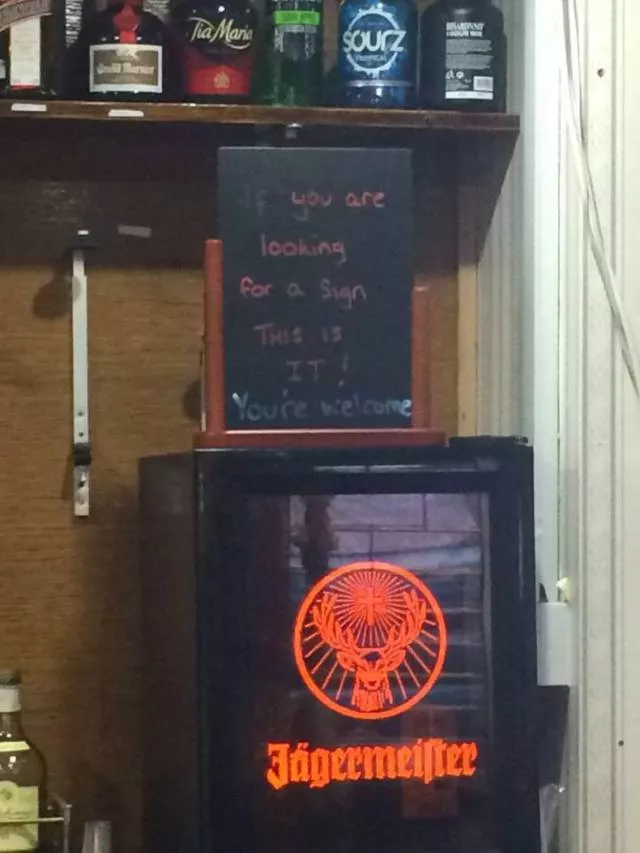 Grand Marnier
Tia Maria
SOURZ
TROPICAL
DISARONNO
If you are
looking
for a Sign
THIS is
IT!
You're welcome
Jägermeister